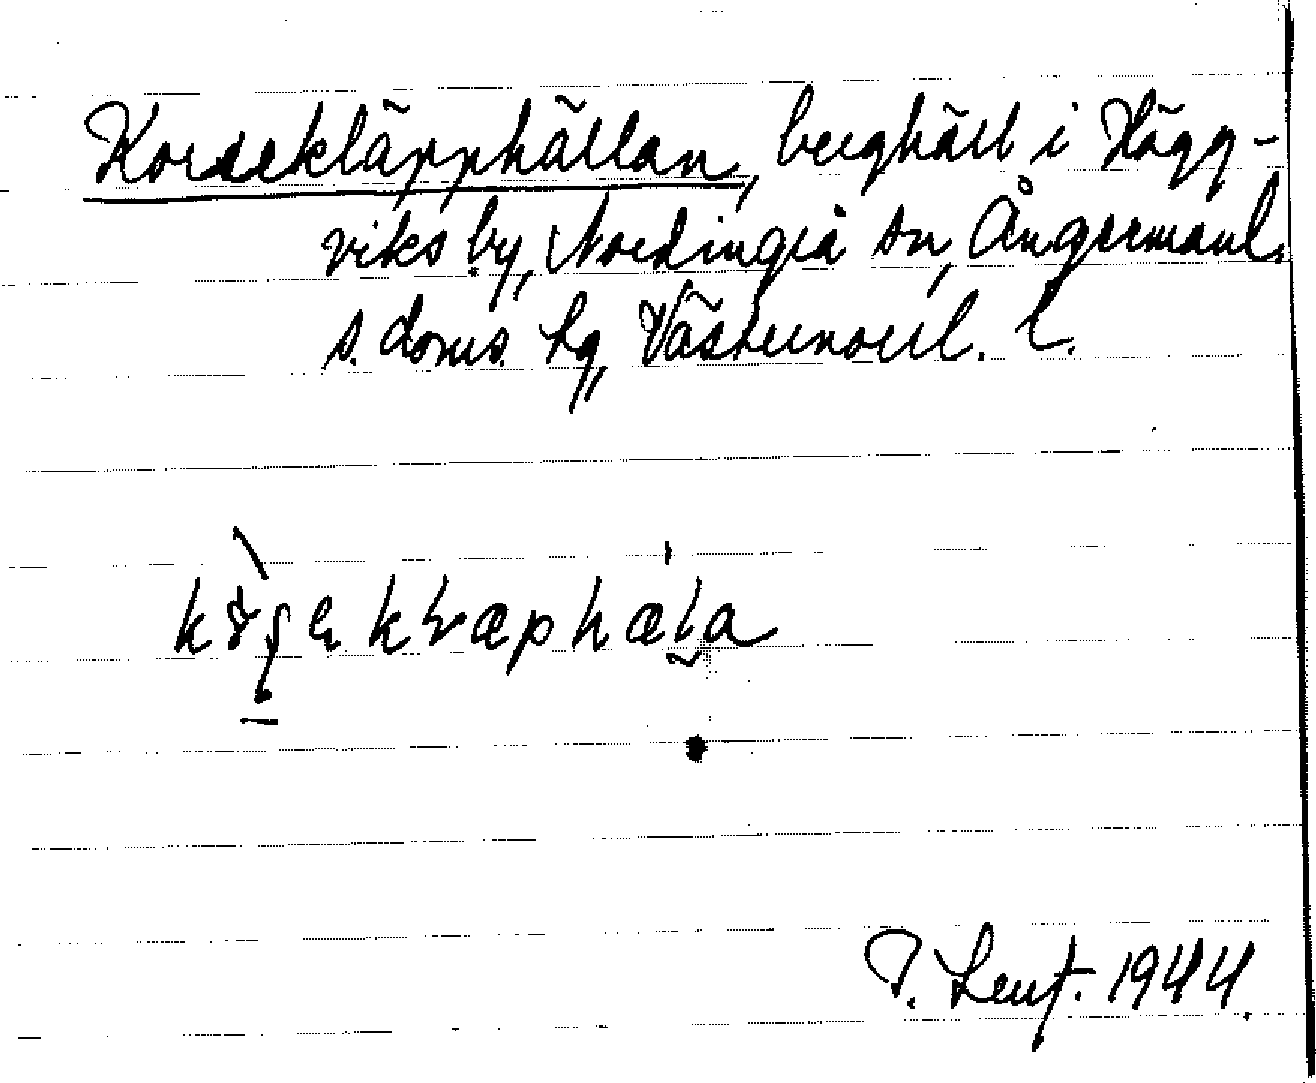 Korsekläpphällan, berghäll i Hägg-
viks by, Nordingrå sn, Ångermanl.
s. doms. hg, Västernorrl. l.
P. Lenf. 1944.